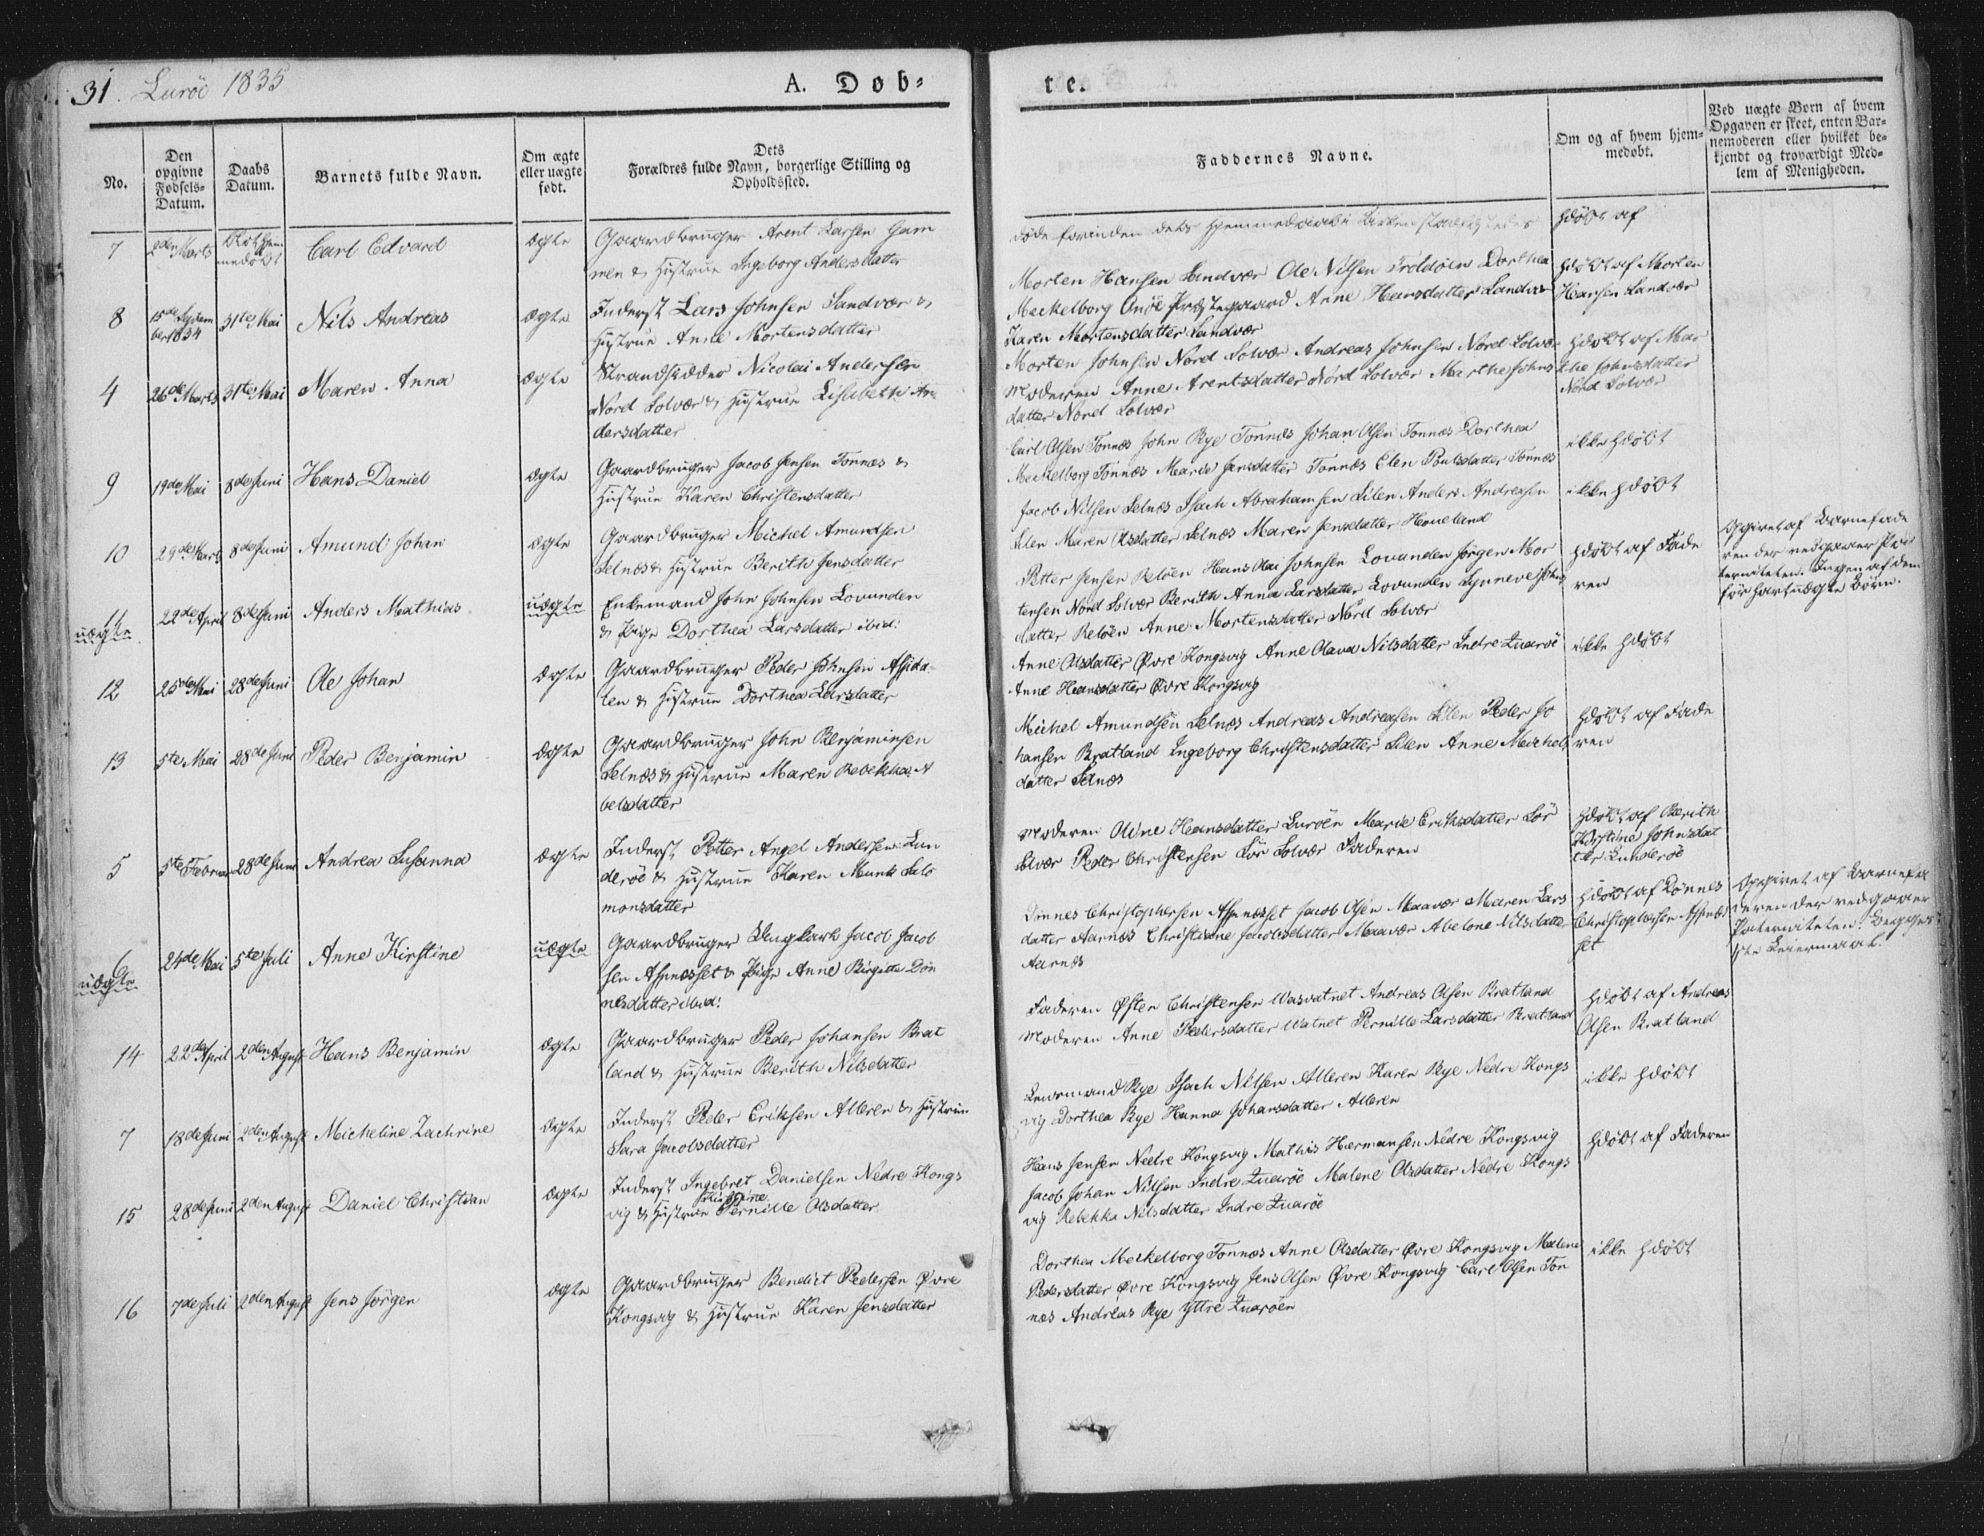 31. Lurøe 1835
A. Døb-
te.
No.
Den opgivne Fødsels-Datum.
Daabs Datum.
Barnets fulde Navn.
Om ægte eller uægte født.
Dets Forældres fulde Navn, borgerlige Stilling og Opholdssted.
Faddernes Navne.
Om og af hvem hjem-medøbt.
Ved uægte Børn af hvem Opgaven er skeet, enten Bar-nemoderen eller hvilket be-kjendt og troværdigt Med-lem af Menigheden.
7 2den Marts Carl Edvard ægte Gaardbruger Arent Larsen Gam
men & Hustrue Ingeborg Andersdatter
døde forinden dets
hdøbt af
8 15de 1834 31te Mai Nils Andreas ægte Inderst Lars Johnsen Sandvær &
Hustrue Anne Mortensdatter
Morten Hansen Sandvær Ole Nilsen Troldøen Dorthea
Meckelborg Onøe Præstegaard Anne Hansdatter Sandvær
Karen Mortensdatter Sandvær
hdøbt af Morten
Hansen Sandvær
4 26de Marts 31te Mai Maren Anna ægte Strandsidder Nicolai Andersen
Nord Solvær & Hustrue Lisabeth An
dersdatter
Morten Johnsen Nord Solvær Andreas Johnsen Nord Solvær
Moderen Anne Arentsdatter Nord Solvær Marthe Johns
datter Nord Solvær
hdøbt af Mar
the Johnsdatter
Nord Solvær
9 19de Mai 8de Juni Hans Daniel ægte Gaardbruger Jacob Jensen Tonnes &
Hustrue Karen Christensdatter
Carl Olsen Tonnes John Rye Tonnes Johan Olsen Tonnes Dorthea
Meckelborg Tonnes Marie Jansdatter Tonnes Elen Poulsdatter Tonnes
ikke hdøbt
10 29de Marts 8de Juni Amund Johan ægte Gaardbruger Michel Amundsen
Selnes & Hustrue Berith Jensdatter
Jacob Nilsen Selnes Isach Abrahamsen Silen Anders Andreasen
Silen Maren Olsdatter Selnes Maren Jensdatter Hemeland
ikke hdøbt
11 uægte 22de April 8de Juni Anders Mathias uægte Enkemand John Johnsen Lovunden
& Pige Dorthea Larsdatter ibid:
Petter Jensen Reløen Hans Kai Johnsen Lovunden Jørgen Mor
tensen Nord Solvær Berith Anna Larsdatter Lovunden Synneve Johns
datter Reløen Anne Mortensdatter Nord Solvær
hdøbt af Fade
ren
Opgivet af Barnefade
ren der vedgaaer Pa
terniteten. Ingen af dem
før havt uægte Børn.
12 25de Mai 28de Juni Ole Johan ægte Gaardbruger Peder Johnsen Aspda-
len & Hustrue Dorthea Larsdatter
Anne Olsdatter Øvre Kongsvig Anne Olava Nilsdatter Indre Qvarøe
Anne Hansdatter Øvre Kongsvig
ikke hdøbt
13 5te Mai 28de Juni Peder Benjamin ægte Gaardbruger John Benjaminsen
Selnes & Hustrue Maren Rebekka A
belsdatter
Michel Amundsen Selnes Andreas Andreasen Silen Peder Jo
hansen Bratland Ingeborg Christensdatter Silen Anne Michels
datter Selnes
hdøbt af Fade
ren
5 5te Februar 28de Juni Andrea Susanna ægte Inderst Petter Angel Andersen Lun
derøe & Hustrue Karen Munk Salo
monsdatter
Moderen Oline Hansdatter Lurøen Marie Eriksdatter Sør
Solvær Peder Christensen Sør Solvær Faderen
hdøbt af Berith
Kirstine Johnsdat
ter Lunderøe
6 uægte 24de Mai 5te Juli Anne Kirstine uægte Gaardbruger Ungkarl Jacob Jacob
sen Aspnesset & Pige Anne Birgitte Døn
nesdatter ibid:
Dønnes Christophersen Aspnesset Jacob Olsen Maavær Maren Lars
datter Aarnes Christiane Jacobsdatter Maavær Abelone Nilsdatter
Aarnes
hdøbt af Dønnes
Christophersen Aspnes
set
Opgivet af Barnefa
deren der vedgaaer
Paterniteten. Begges
1ste Leiermaal.
14 22de April 2den August Hans Benjamin ægte Gaardbruger Peder Johansen Brat
land & Hustrue Berith Nilsdatter
Faderen Østen Christensen Wasvatnet Andreas Olsen Bratland
Moderen Anne Pedersdatter Watnet Pernille Larsdatter Bratland
hdøbt af Andreas
Olsen Bratland
7 18de Juni 2den August Micheline Zachrine ægte Inderst Peder Eriksen Alteren & Hustrue
Sara Jacobsdatter
Lensmand Rye Isach Nilsen Alteren Karen Rye Nedre Kongs
vig Dorthea Rye Hanna Johansdatter Alteren
ikke hdøbt
15 28de Juni 2den August Daniel Christian ægte Inderst Ingebret Danielsen Nedre Kongs
vig & Hustrue Pernille Olsdatter
Hans Jensen Nedre Kongsvig Mathis Hermansen Nedre Kongsvig
Jacob Johan Nilsen Indre Qvarøe Malene Olsdatter Nedre Kongs
vig Rebekka Nilsdatter Indre Qvarøe
hdøbt af Faderen
16 7de Juli 2den August Jens Jørgen ægte Gaardbruger Benedict Pedersen Øvre
Kongsvig & Hustrue Karen Jensdatter
Dorthea Meckelborg Tonnes Anne Olsdatter Øvre Kongsvig Malene
Pedersdatter Øvre Kongsvig Jens Olsen Øvre Kongsvig Carl Olsen Ton
nes Andreas Rye Yttre Qvarøen
ikke hdøbt